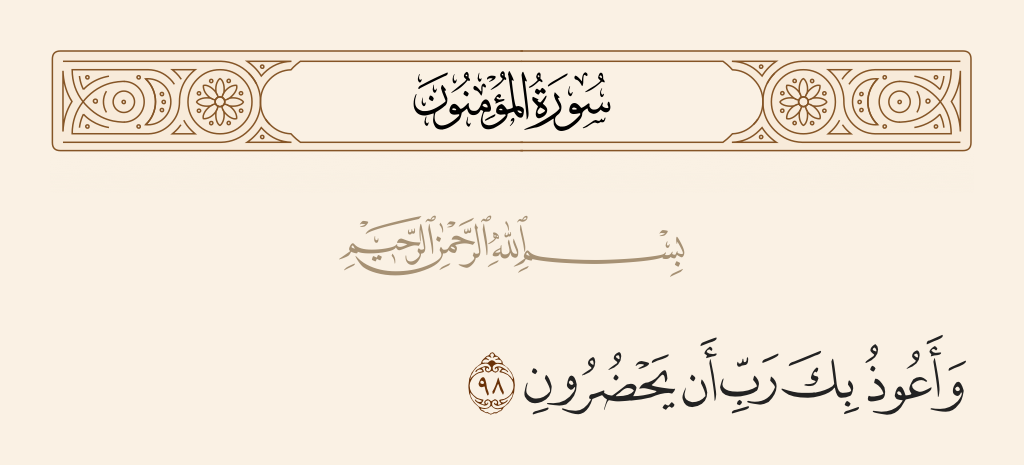 سُورَةُ الْمُؤْمِنُونَ
بِسْمِ ٱللَّهِ ٱلرَّحْمَٰنِ ٱلرَّحِيمِ
وَأَعُوذُ بِكَ رَبِّ أَن يَحْضُرُونِ ٩٨